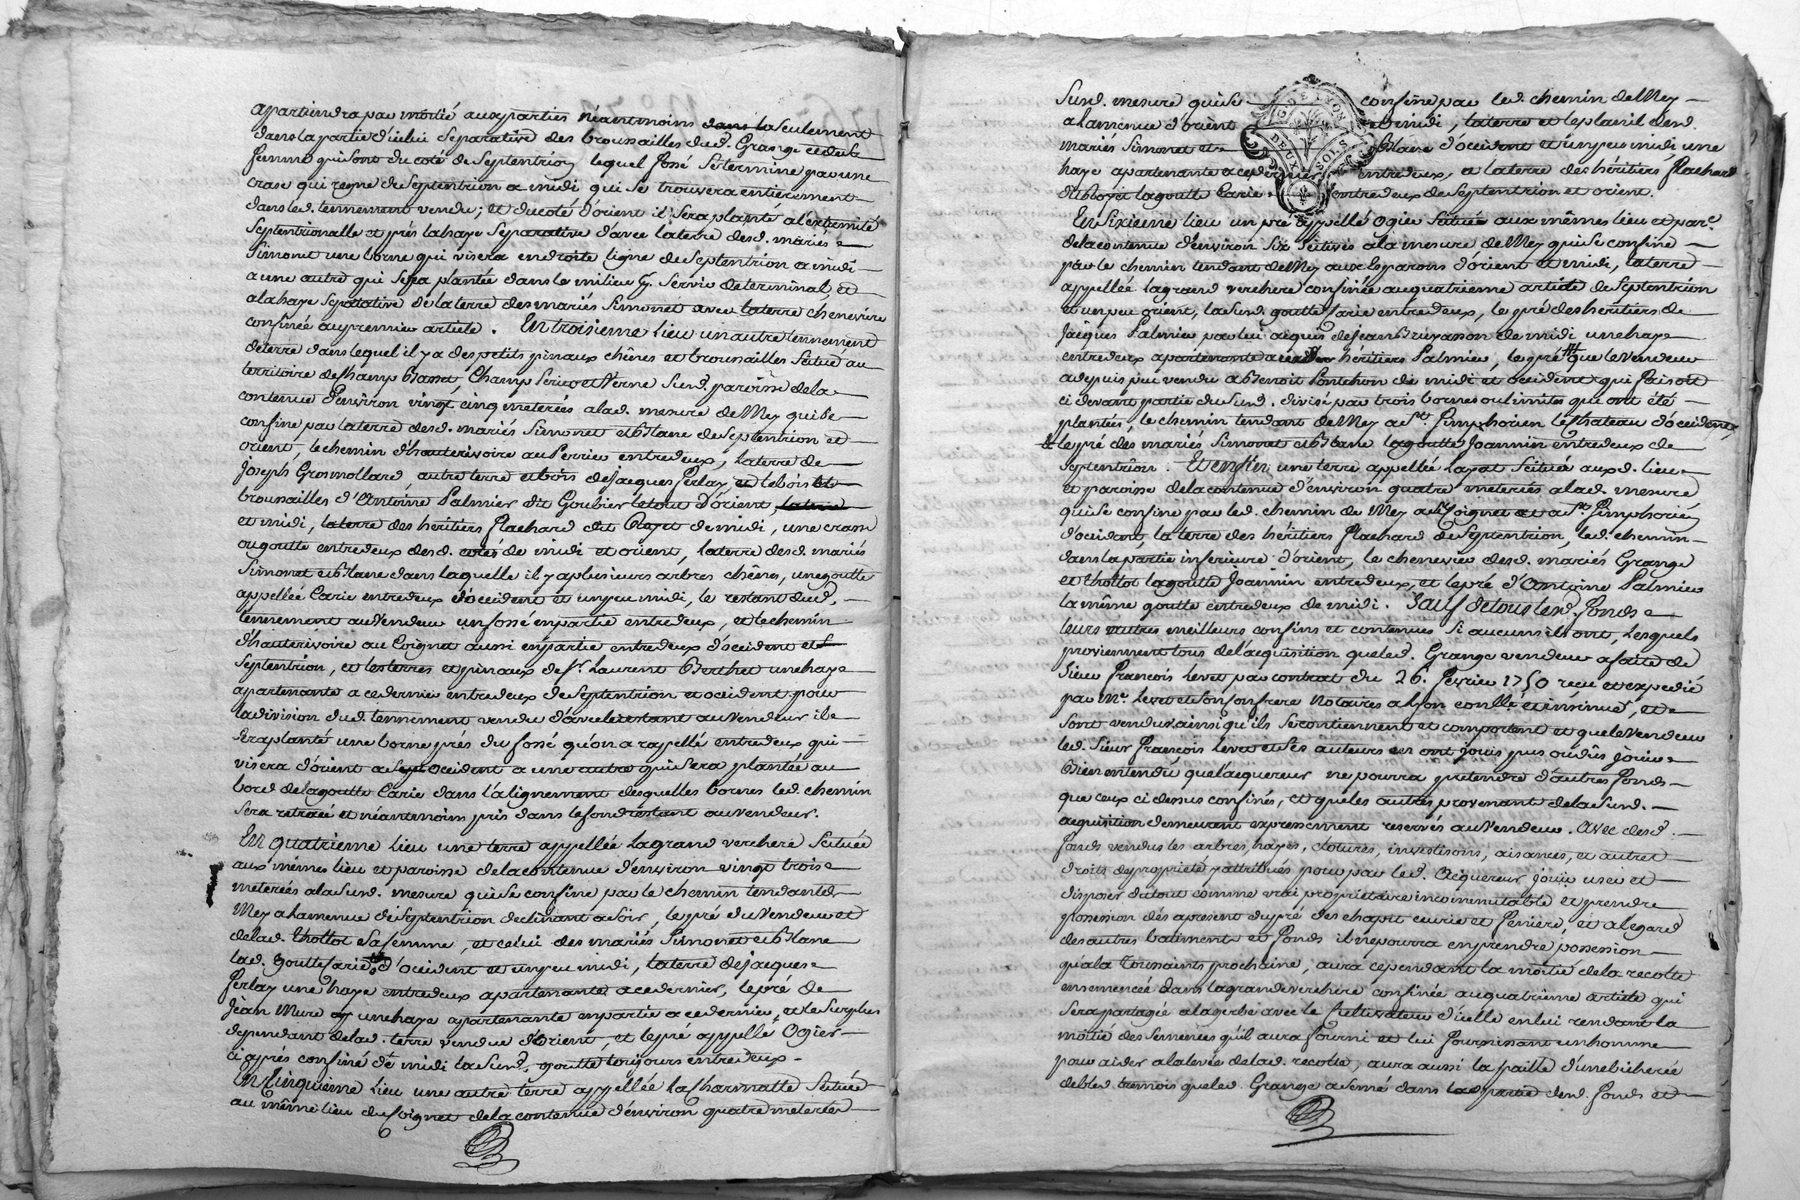 apartiendra par moitié aux parties néantmoins dans la seulement
dans la partie d'icelui séparative des brousailles dud. Grange et de sa
femme qui sont du coté de septentrion, lequel fossé se termine par une
crase qui regne de septentrion a midi qui se trouvera entierement
dans led. tennement vendu; et du coté d'orient il sera planté a l'extremité
septentrionalle et près la haye séparative d'avec la terre desd. mariés
Simonet une borne qui visera en droite ligne de septentrion a midi
a une autre qui sera plantée dans le milieu servir de terminal, et
a la haye séparative de la terre des mariés Simonet avec la terre chéneviere
confinée au premier article. En troisieme lieu un autre tennement
de terre dans lequel il y a des petits pinaux chênes et brousailles scitué au
territoire de Champ Basset, Champ Serico et Verne susd. paroisse de la
contenue d'environ vingt cinq meterées a lad. mesure de Mey qui se
confine par la terre desd. mariés Simonet et Blanc de septentrion et
orient, le chemin d'hauterivoire au Perrier entredeux, la terre de
Joseph Grosmollard, autre terre et bois de Jacques Ferlay et le bois et
brousailles d'Antoine Palmier dit Goubier le tout d'orient, la terre
et midi, la terre des héritiers Flachard dit Bloyet de midi, une crase
ou goutte entredeux desd. cotés de midi et orient, la terre desd. mariés
Simonet et Blanc dans laquelle il y a plusieurs arbres chênes, une goutte
appellée Carie entredeux d'occident et un peu midi, le restant dud.
tennement au vendeur un fossé en partie entredeux, et le chemin
d'hauterivoire au Coignet aussi en partie entredeux d'occident et
septentrion, et les terres et pinaux de Sr. Laurent Berthet une haye
apartenante a ce dernier entredeux de septentrion et occident pour
la division dud. tennement vendu d'avec le restant au vendeur il
sera planté une borne près du fossé qu'on a rappellé entredeux qui
visera d'orient a sept occident a une autre qui sera plantée au
bord de la goutte Carie dans l'alignement desquelles bornes led. chemin
sera retracé et néantmoins pris dans le fond restant au vendeur.
En quatrieme lieu une terre appellée la grand verchere scituée
aux mêmes lieu et paroisse de la contenue d'environ vingt trois
meterées a la susd. mesure qui se confine par le chemin tendant de
Mey a Lamenue de septentrion declinant a soir, le pré du vendeur et
de lad. Thollot sa femme, et celui des mariés Simonet et Blanc
lad. goutte Carie d'occident et un peu midi, la terre de Jacques
Ferlay une haye entredeux apartenante a ce dernier, le pré de
Jean Mure une haye appartenante en partie a ce dernier, et le surplus
dépendant de lad. terre vendue d'orient, et le pré appellé Ogier
ci après confiné de midi la susd. goutte toujours entredeux.
En cinquieme lieu une autre terre appellée la Charmatte scituée
au même lieu du Coignet de la contenue d'environ quatre meterées
susd. mesure qui se confine par led. chemin de Mey
a Lamenue d'orient et midi, la terre et le plail desd.
mariés Simonet et Blanc d'occident et un peu midi une
haye apartenante a ce dernier entredeux, et la terre des héritiers Flachard
dit Bloyet la goutte Carie entredeux de septentrion et orient.
En sixieme lieu un pré appellé Ogier scitué aux mêmes lieu et par.e
de la contenue d'environ six seitives a la mesure de Mey qui se confine
par le chemin tendant de Mey aux Esparons d'orient et midi, la terre
appellée la grand verchere confinée au quatrieme article de septentrion
et un peu orient, la susd. goutte Carie entredeux, le pré des héritiers de
Jacques Palmier par lui acquis de Jean Bruyasson de midi une haye
entredeux apartenante a héritiers Palmier, le pré que le vendeur
a depuis peu vendu a Benoit Ponchon de midi et occident qui faisoit
ci devant partie du susd. divisé par trois bornes ou limites qui ont été
plantées, le chemin tendant de Mey a St. Simphorien le Chateau d'occident
& le pré des mariés Simonet et Blanc la goutte Joannin entredeux de
septentrion. Et enfin une terre appellée Layat scituée aux d. lieu
et paroisse de la contenue d'environ quatre meterées a lad. mesure
qui se confine par led. chemin de Mey au Coignet et a St. Simphorien
d'occident, la terre des héritiers Flachard de septentrion, led. chemin
dans la partie inferieure d'orient, le chenevier desd. mariés Grange
et Thollot la goutte Joannin entredeux, et le pré d'Antoine Palmier
la même goutte entredeux de midi. Sauf de tous lesd. fonds
leurs autres meilleurs confins et contenues si aucuns ils ont, lesquels
proviennent tous de l'acquisition que led. Grange vendeur a faite de
Sieur François Levet par contrat du 26. Fevrier 1750 recu et expedié
par Me. Levet et son confrere Notaires a Lyon conllé et insinué, et
sont vendus ainsi qu'ils se contiennent et comportent et que le vendeur
led. Sieur François Levet et ses auteurs en ont joui pus ou dûs jouir
Bien entendu que l'acquereur ne pourra pretendre d'autres fonds
que ceux ci dessus confinés, et que les autres provenant de la susd.
acquisition demeurant expressement reservés au vendeur. Avec desd.
fonds vendus les arbres, hayes, clotures, investisons, aisances, et autres
droits de proprieté y attribués pour par led. acquereur jouir user et
disposer du tout comme vrai propriétaire incommutable et prendre
possession dès apresent du pré des chapit ecurie et feniere, et a l'egard
des autres batiments et fonds il ne pourra en prendre possession
qu'a la Toussaints prochaine, aura cependant la moitié de la recolte
ensemencée dans la grande verchere confinée au quatrieme article qui
sera partagée a la gerbe avec le cultivateur d'icelle en lui rendant la
moitié des semences qu'il aura fourni et lui fournissant un homme
pour aider a la levée de lad. recolte, aura aussi la paille d'une bicherée
de bled tremois que led. Grange a semé dans la partie desd. fonds et
G. DE LYON
DEUX SOLS